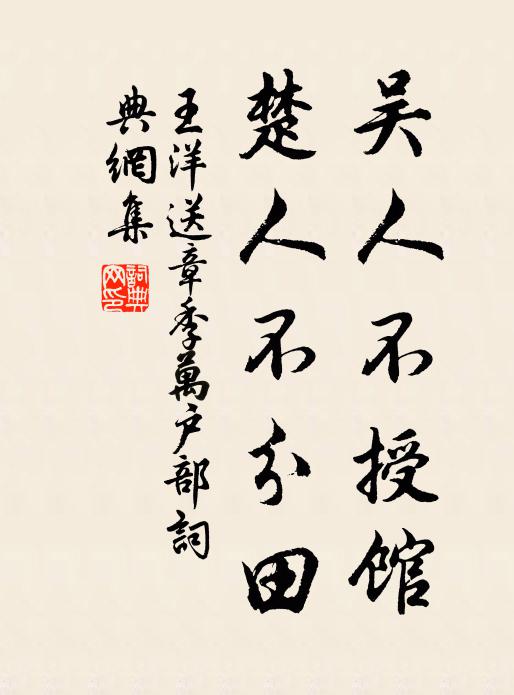 吴人不授馆
楚人不分田
王洋送章季萬户部詞
典網集
詞典
网印